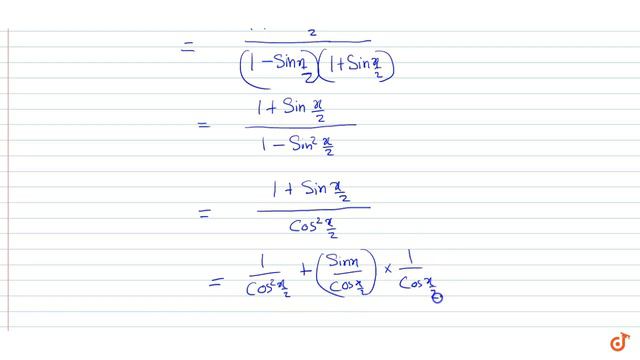 2
= (1 - Sin x/2)(1 + Sin x/2)
= (1 + Sin x/2) / (1 - Sin² x/2)
= (1 + Sin x/2) / (Cos² x/2)
= 1 / (Cos² x/2) + (Sin x / Cos x/2) × 1 / (Cos x/2)